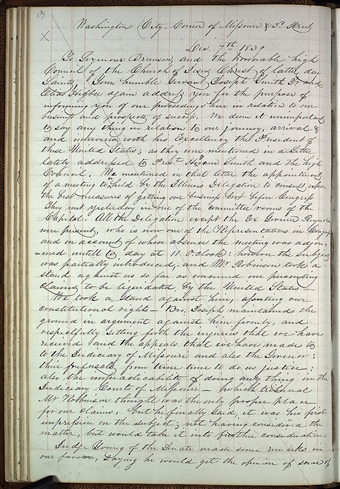 Washington City, Corner of Missouri & 3d Street
Dec. 7th 1839
To Seymour Brunson, and the honorable high
Council of the Church of Jesus Christ of latter day
Saints, Your humble servants Joseph Smith Jr and
Elias Higbee again address you for the purpose of
informing you of our proceedings here in relation to our
business and prospects of success. We deem it unnecessary
to say any thing in relation to our journey, arrival &
and interview with his Excellency the President of
these United States; as they were mentioned in a letter
lately addressed to Prest Hyrum Smith and the high
Council. We mentioned in that letter the appointment
of a meeting to be held by the Illinois Delegation to consult upon
the best measure of getting our business before Congress
They met yesterday in one of the committee rooms of the
Capitol: All the Delegation except the Ex Governor Reynolds
were present, who is now one of the Representatives in Congress
and on account of whose absence the meeting was adjour-
ned untill to day at 11 O.clock: however the subject
was partially introduced, and Mr Robinson took a
stand against us so far as concerned our presenting
claims to be liquidated by the United States
We took a stand against him, asserting our
constitutional rights— Bro. Joseph maintained the
ground in argument against him firmly, and
respectfully setting forth the injuries that we have
received and the appeals that we have made to
to the Judiciary of Missouri and also the Governor:
their refusals from time to time to do us justice;
also the impracticability of doing any thing in the
Judiciary Courts of Missouri— which tribunal
Mr Robinson thought was the only proper place
for our claims, but he finally said, it was his first
impression on the subject; not having considered the
matter, but would take it into further consideration.
Judge Young of the Senate made some remarks in
our favor, saying he would get the opinion of some of